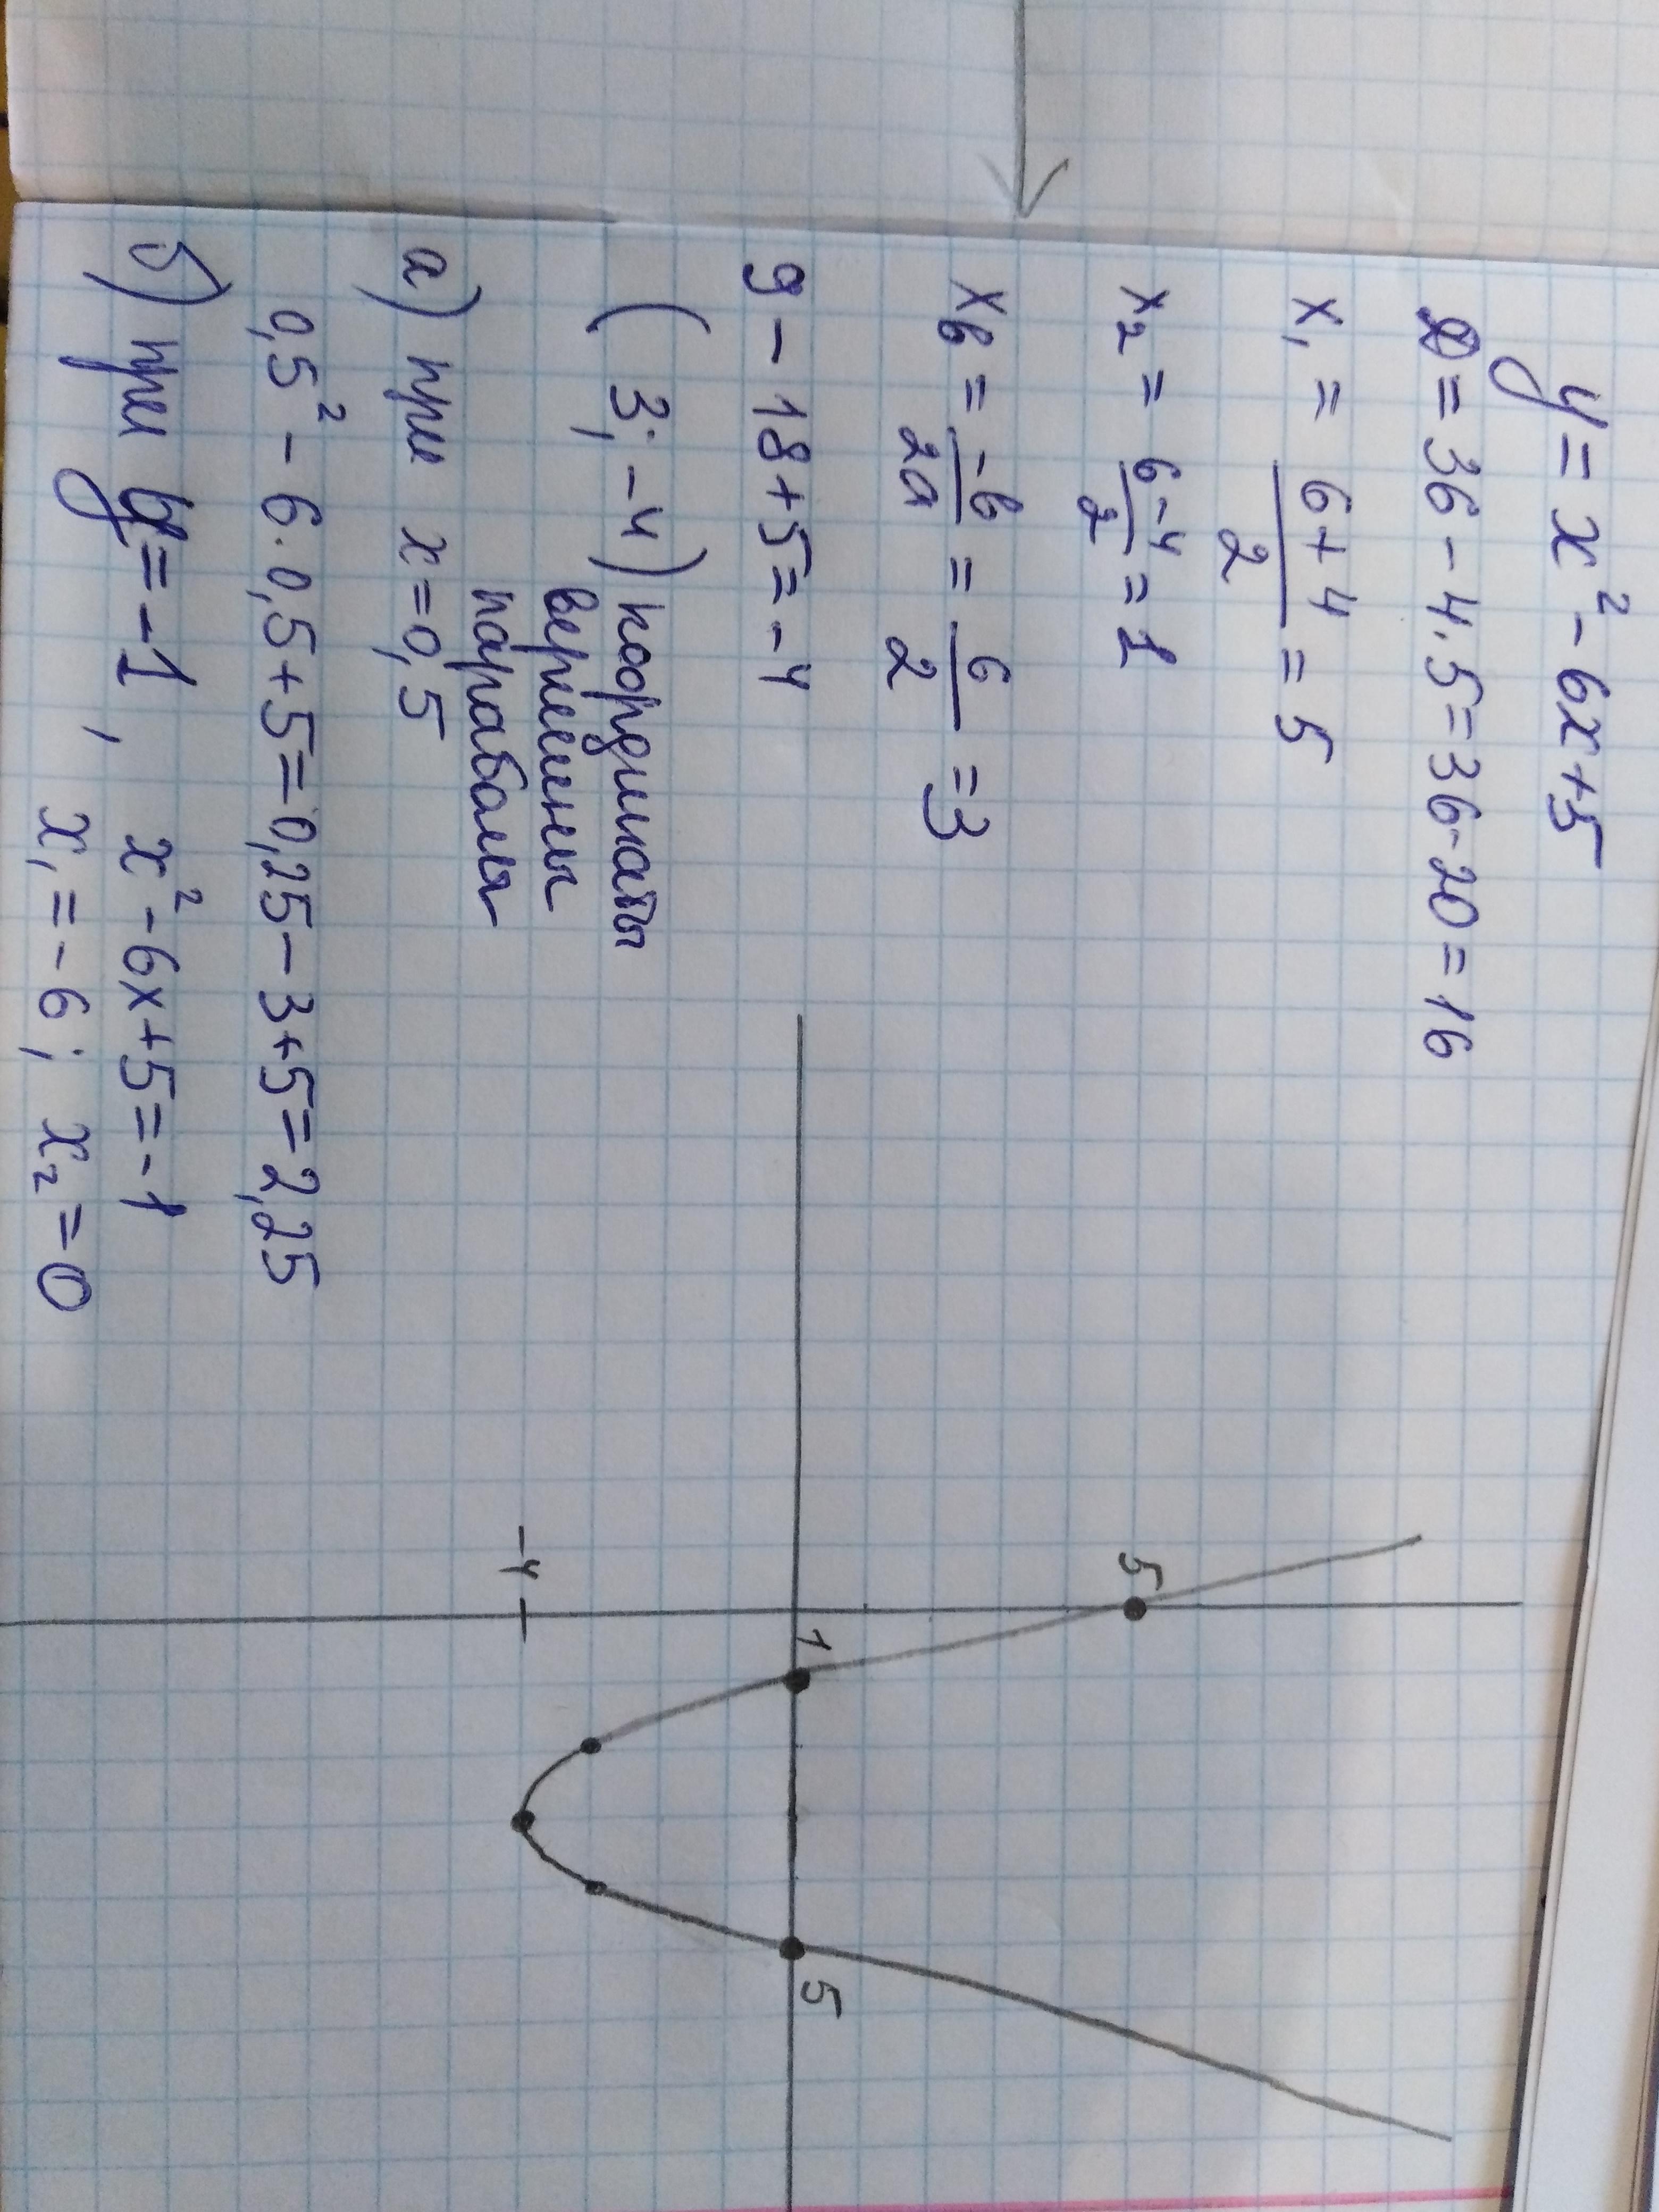 y = x² - 6x + 5
D = 36 - 4 · 5 = 36 - 20 = 16
x₁ = (6 + 4)/2 = 5
x₂ = (6 - 4)/2 = 1
xв = -в/2a = 6/2 = 3
9 - 18 + 5 = -4
(3; -4) координаты
вершины
параболы
а) при x = 0,5
0,5² - 6 · 0,5 + 5 = 0,25 - 3 + 5 = 2,25
б) при y = -1, x² - 6x + 5 = -1
x₁ = -6; x₂ = 0
5
1
5
-4